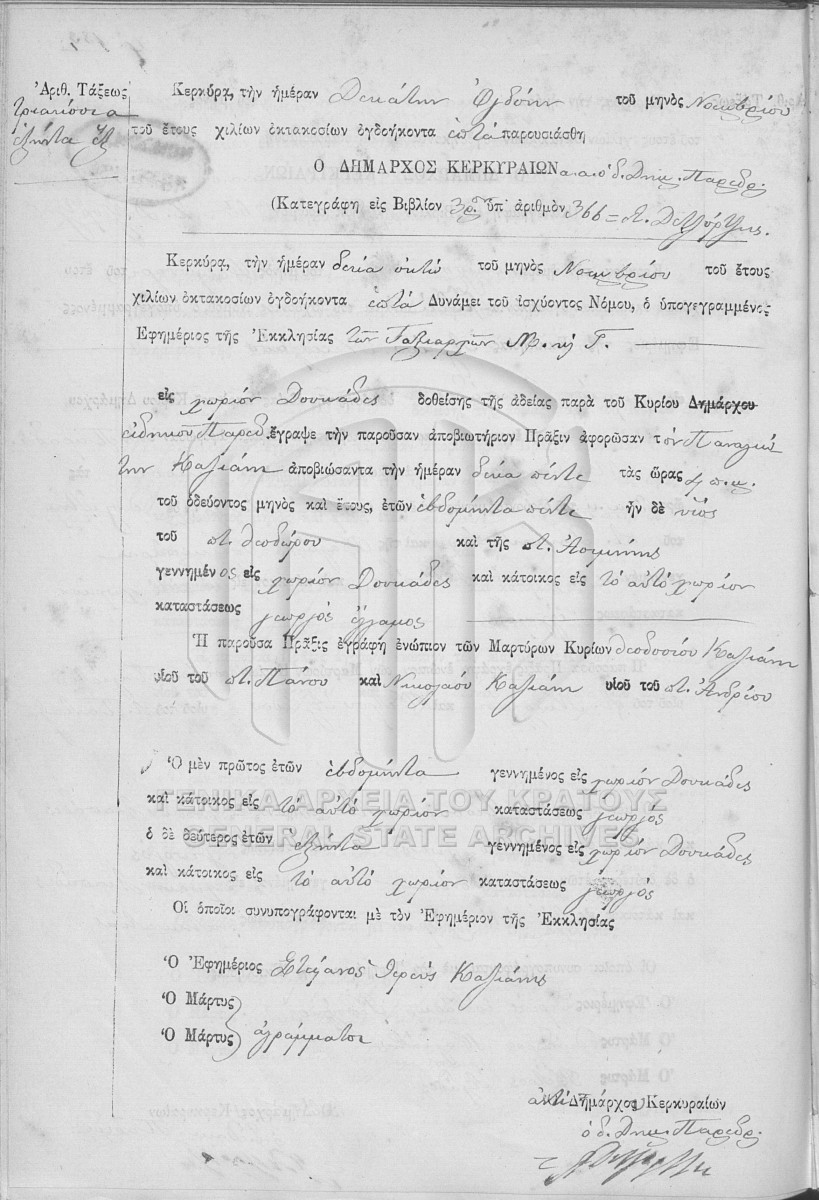 Ἀριθ. Τάξεως
τριακόσια
ἑξήντα ἕξ
Κερκύρα, τὴν ἡμέραν Δεκάτην Ὀγδόην τοῦ μηνὸς Νοεμβρίου
τοῦ ἔτους χιλίων ὀκτακοσίων ὀγδοήκοντα ἑπτά παρουσιάσθη
Ὁ ΔΗΜΑΡΧΟΣ ΚΕΡΚΥΡΑΙΩΝ ὁ δ. Δημ. Πάρεδρ.
(Κατεγράφη εἰς Βιβλίον ὑπ' ἀριθμὸν 366 =
Κερκύρα, τὴν ἡμέραν δέκα ὀκτώ τοῦ μηνὸς Νοεμβρίου τοῦ ἔτους
χιλίων ὀκτακοσίων ὀγδοήκοντα ἑπτά Δυνάμει τοῦ ἰσχύοντος Νόμου, ὁ ὑπογεγραμμένος
Ἐφημέριος τῆς Ἐκκλησίας τῶν Ταξιαρχῶν Μ. καὶ Γ.
εἰς χωρίον Δουκάδες δοθείσης τῆς ἀδείας παρὰ τοῦ Κυρίου Δημάρχου
εἰδικοῦ Παρέδ. ἔγραψε τὴν παροῦσαν ἀποβιωτήριον Πρᾶξιν ἀφορῶσαν τὸν Παναγιώ
την Καζιάνη ἀποβιώσαντα τὴν ἡμέραν δέκα πέντε τὰς ὥρας 4 π.μ.
τοῦ ὁδεύοντος μηνὸς καὶ ἔτους, ἐτῶν ἑβδομήντα πέντε ἦν δὲ υἱός
τοῦ ποτ. Θεοδώρου καὶ τῆς ποτ. Ἀσημίνης
γεννημένος εἰς χωρίον Δουκάδες καὶ κάτοικος εἰς τὸ αὐτό χωρίον
καταστάσεως γεωργός ἔγγαμος
Ἡ παροῦσα Πρᾶξις ἐγράφη ἐνώπιον τῶν Μαρτύρων Κυρίων Θεοδοσίου Καζιάνη
υἱοῦ τοῦ ποτ. Πάνου καὶ Νικολάου Καζιάνη υἱοῦ τοῦ ποτ. Ἀνδρέου
Ὁ μὲν πρῶτος ἐτῶν ἑβδομήντα γεννημένος εἰς χωρίον Δουκάδες
καὶ κάτοικος εἰς τὸ αὐτό χωρίον καταστάσεως γεωργός
ὁ δὲ δεύτερος ἐτῶν ἑξήντα γεννημένος εἰς χωρίον Δουκάδες
καὶ κάτοικος εἰς τὸ αὐτό χωρίον καταστάσεως γεωργός
Οἱ ὁποῖοι συνυπογράφονται μὲ τὸν Ἐφημέριον τῆς Ἐκκλησίας
Ὁ Ἐφημέριος Στέφανος Ἱερεὺς Καζιάνης
Ὁ Μάρτυς
Ὁ Μάρτυς ἀγράμματοι
ἀντί Δημάρχου Κερκυραίων
ὁ δ. Δημ. Πάρεδρ.
ΓΕΝΙΚΑ ΑΡΧΕΙΑ ΤΟΥ ΚΡΑΤΟΥΣ
GENERAL STATE ARCHIVES